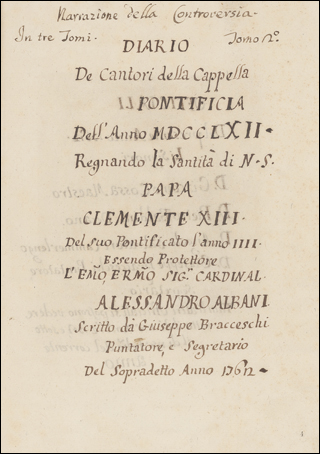 Narrazione della Controversia.
In tre Tomi. Tomo 2º.
DIARIO
De Cantori della Cappella
PONTIFICIA
Dell'Anno MDCCLXII.
Regnando la Santità di N. S.
PAPA
CLEMENTE XIII.
Del suo Pontificato l'anno IIII.
Essendo Protettore
L'EMO, ERMO SIG. CARDINAL
ALESSANDRO ALBANI
Scritto da Giuseppe Bracceschi
Puntatore, e Segretario
Del Sopradetto Anno 1762.
1